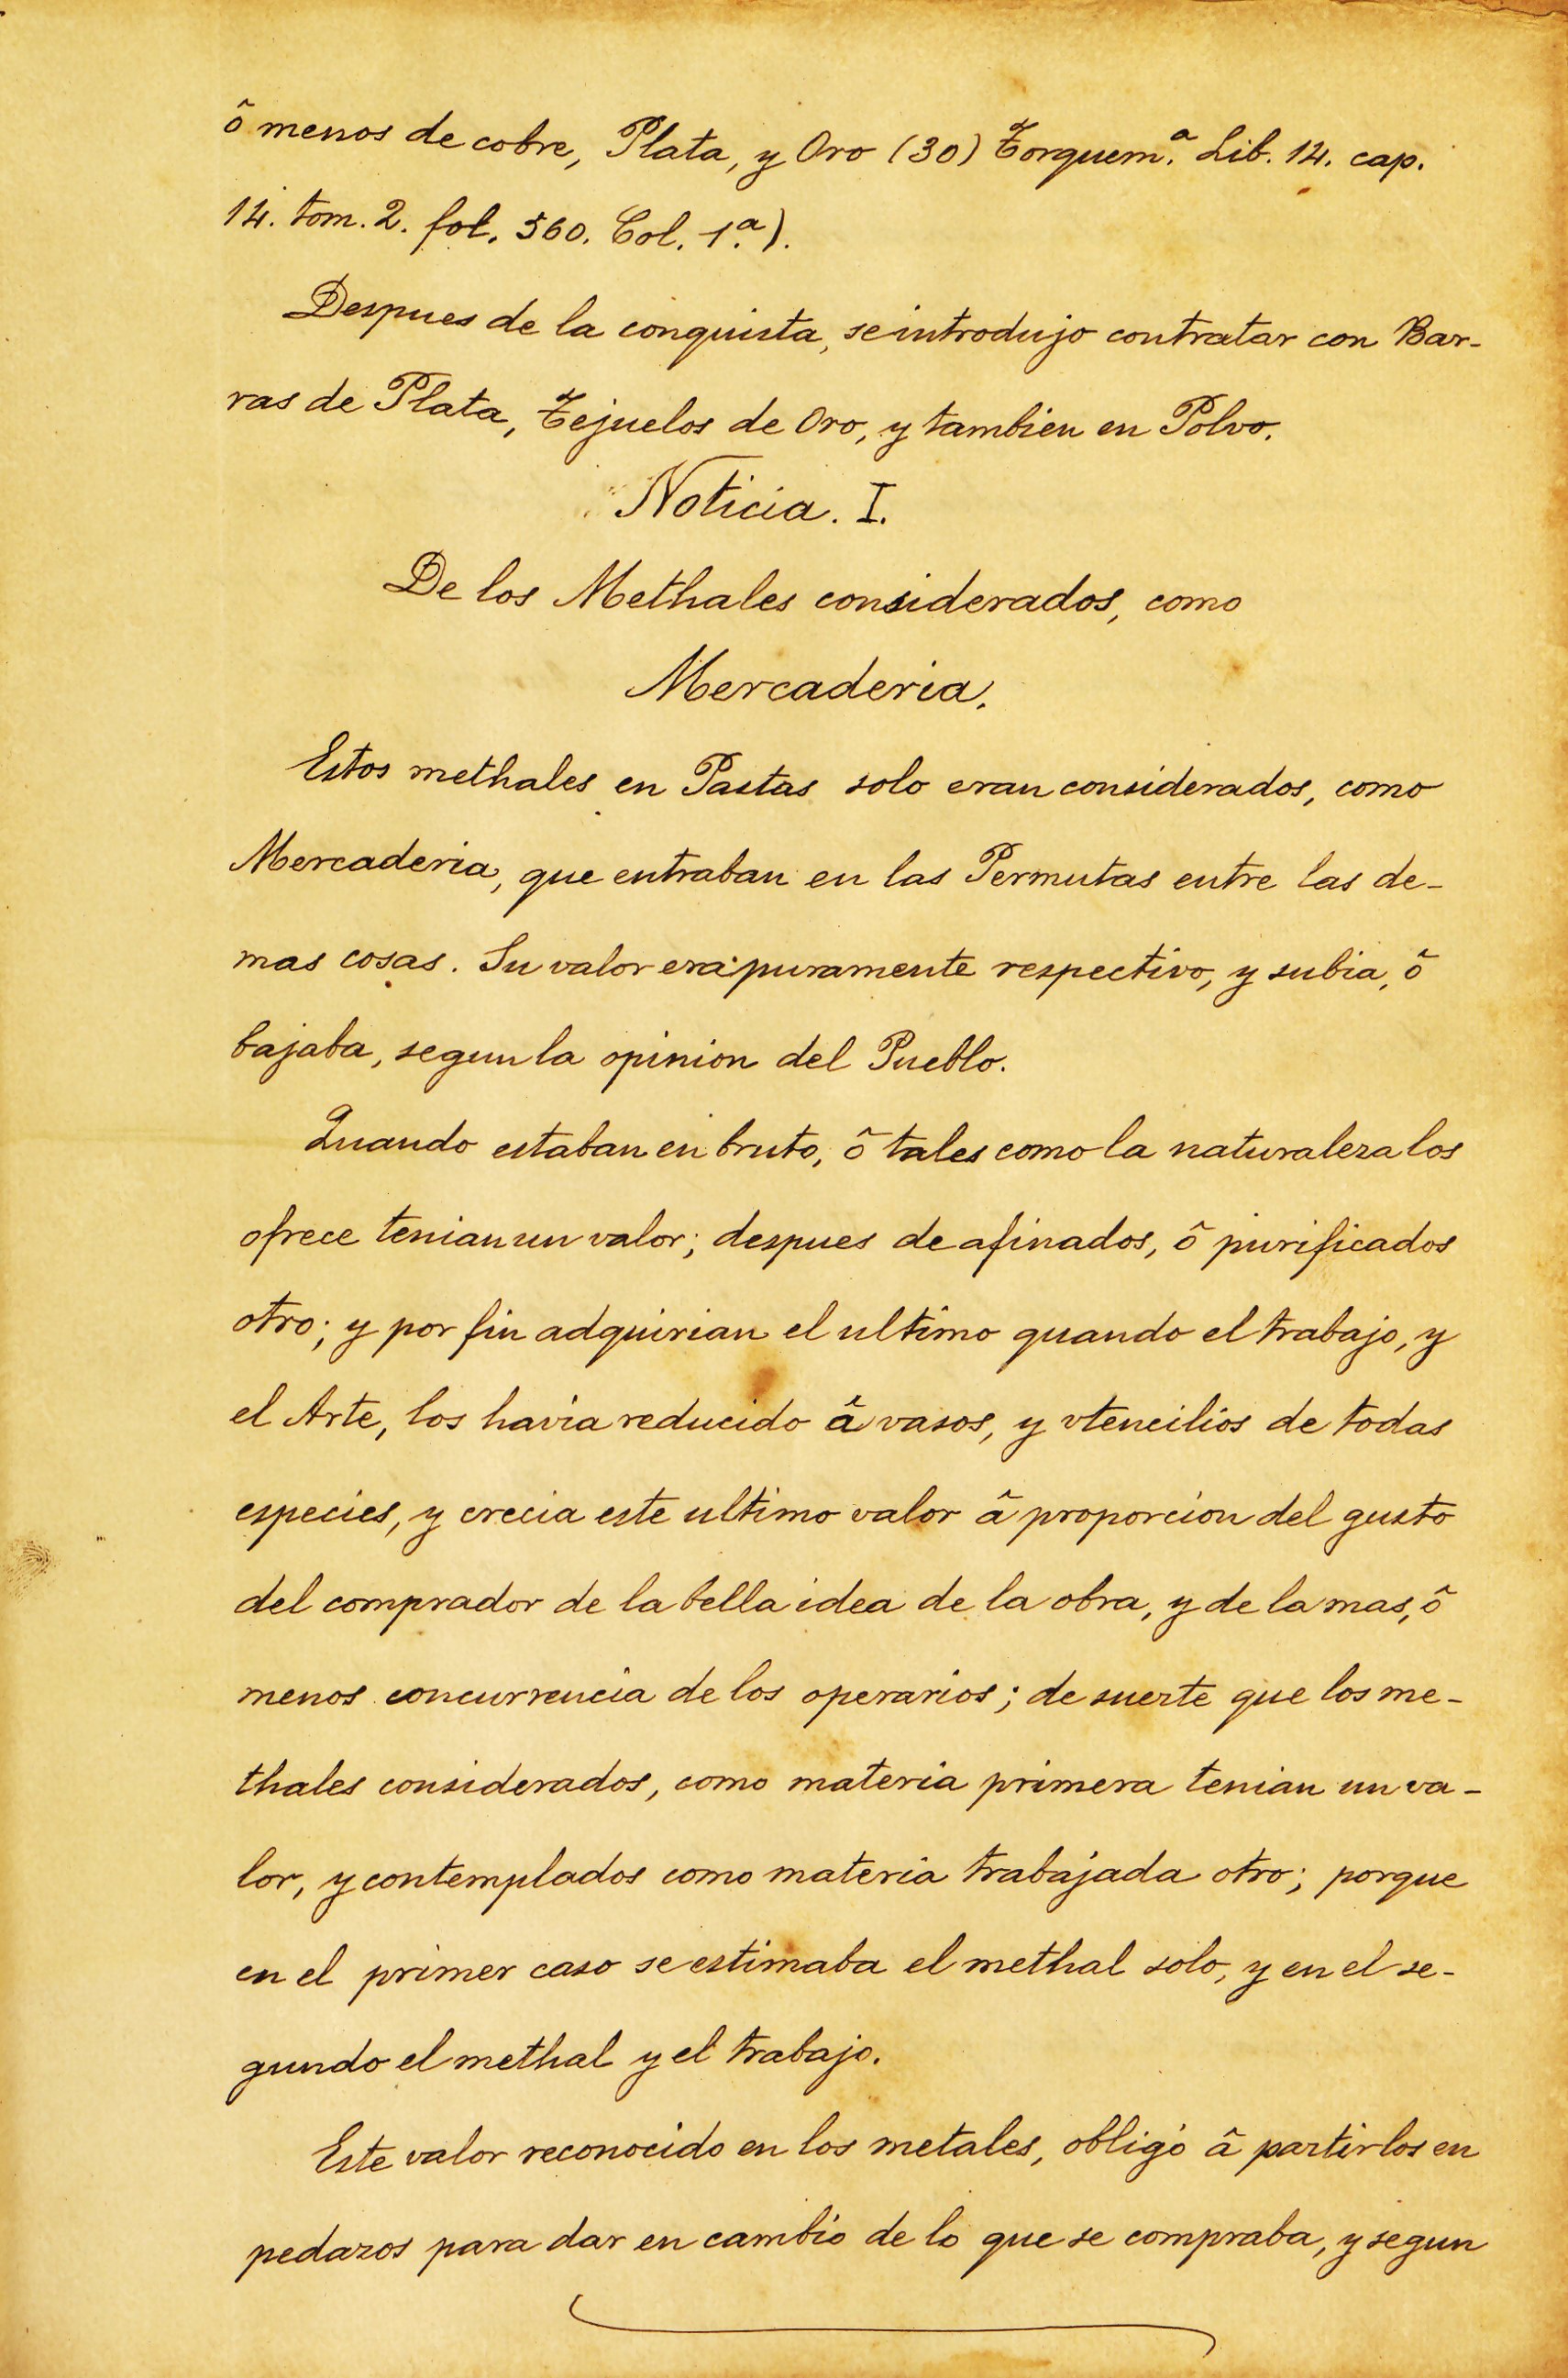 ô menos de cobre, Plata, y Oro (30) Torquem.ª Lib. 14. cap.
14. tom. 2. fol. 560. Col. 1.ª).
Despues de la conquista, se introdujo contratar con Bar-
ras de Plata, Tejuelos de Oro, y tambien en Polvo.
Noticia. I.
De los Methales considerados, como
Mercaderia.
Estos methales en Pastas solo eran considerados, como
Mercaderia, que entraban en las Permutas entre las de-
mas cosas. Su valor era puramente respectivo, y subia, ô
bajaba, segun la opinion del Pueblo.
Quando estaban en bruto, ô tales como la naturaleza los
ofrece tenian un valor; despues de afinados, ô purificados
otro; y por fin adquirian el ultimo quando el trabajo, y
el Arte, los havia reducido â vasos, y vtencilios de todas
especies, y crecia este ultimo valor â proporcion del gusto
del comprador de la bella idea de la obra, y de la mas, ô
menos concurrencia de los operarios; de suerte que los me-
thales considerados, como materia primera tenian un va-
lor, y contemplados como materia trabajada otro; porque
en el primer caso se estimaba el methal solo, y en el se-
gundo el methal y el trabajo.
Este valor reconocido en los metales, obligó â partirlos en
pedazos para dar en cambio de lo que se compraba, y segun